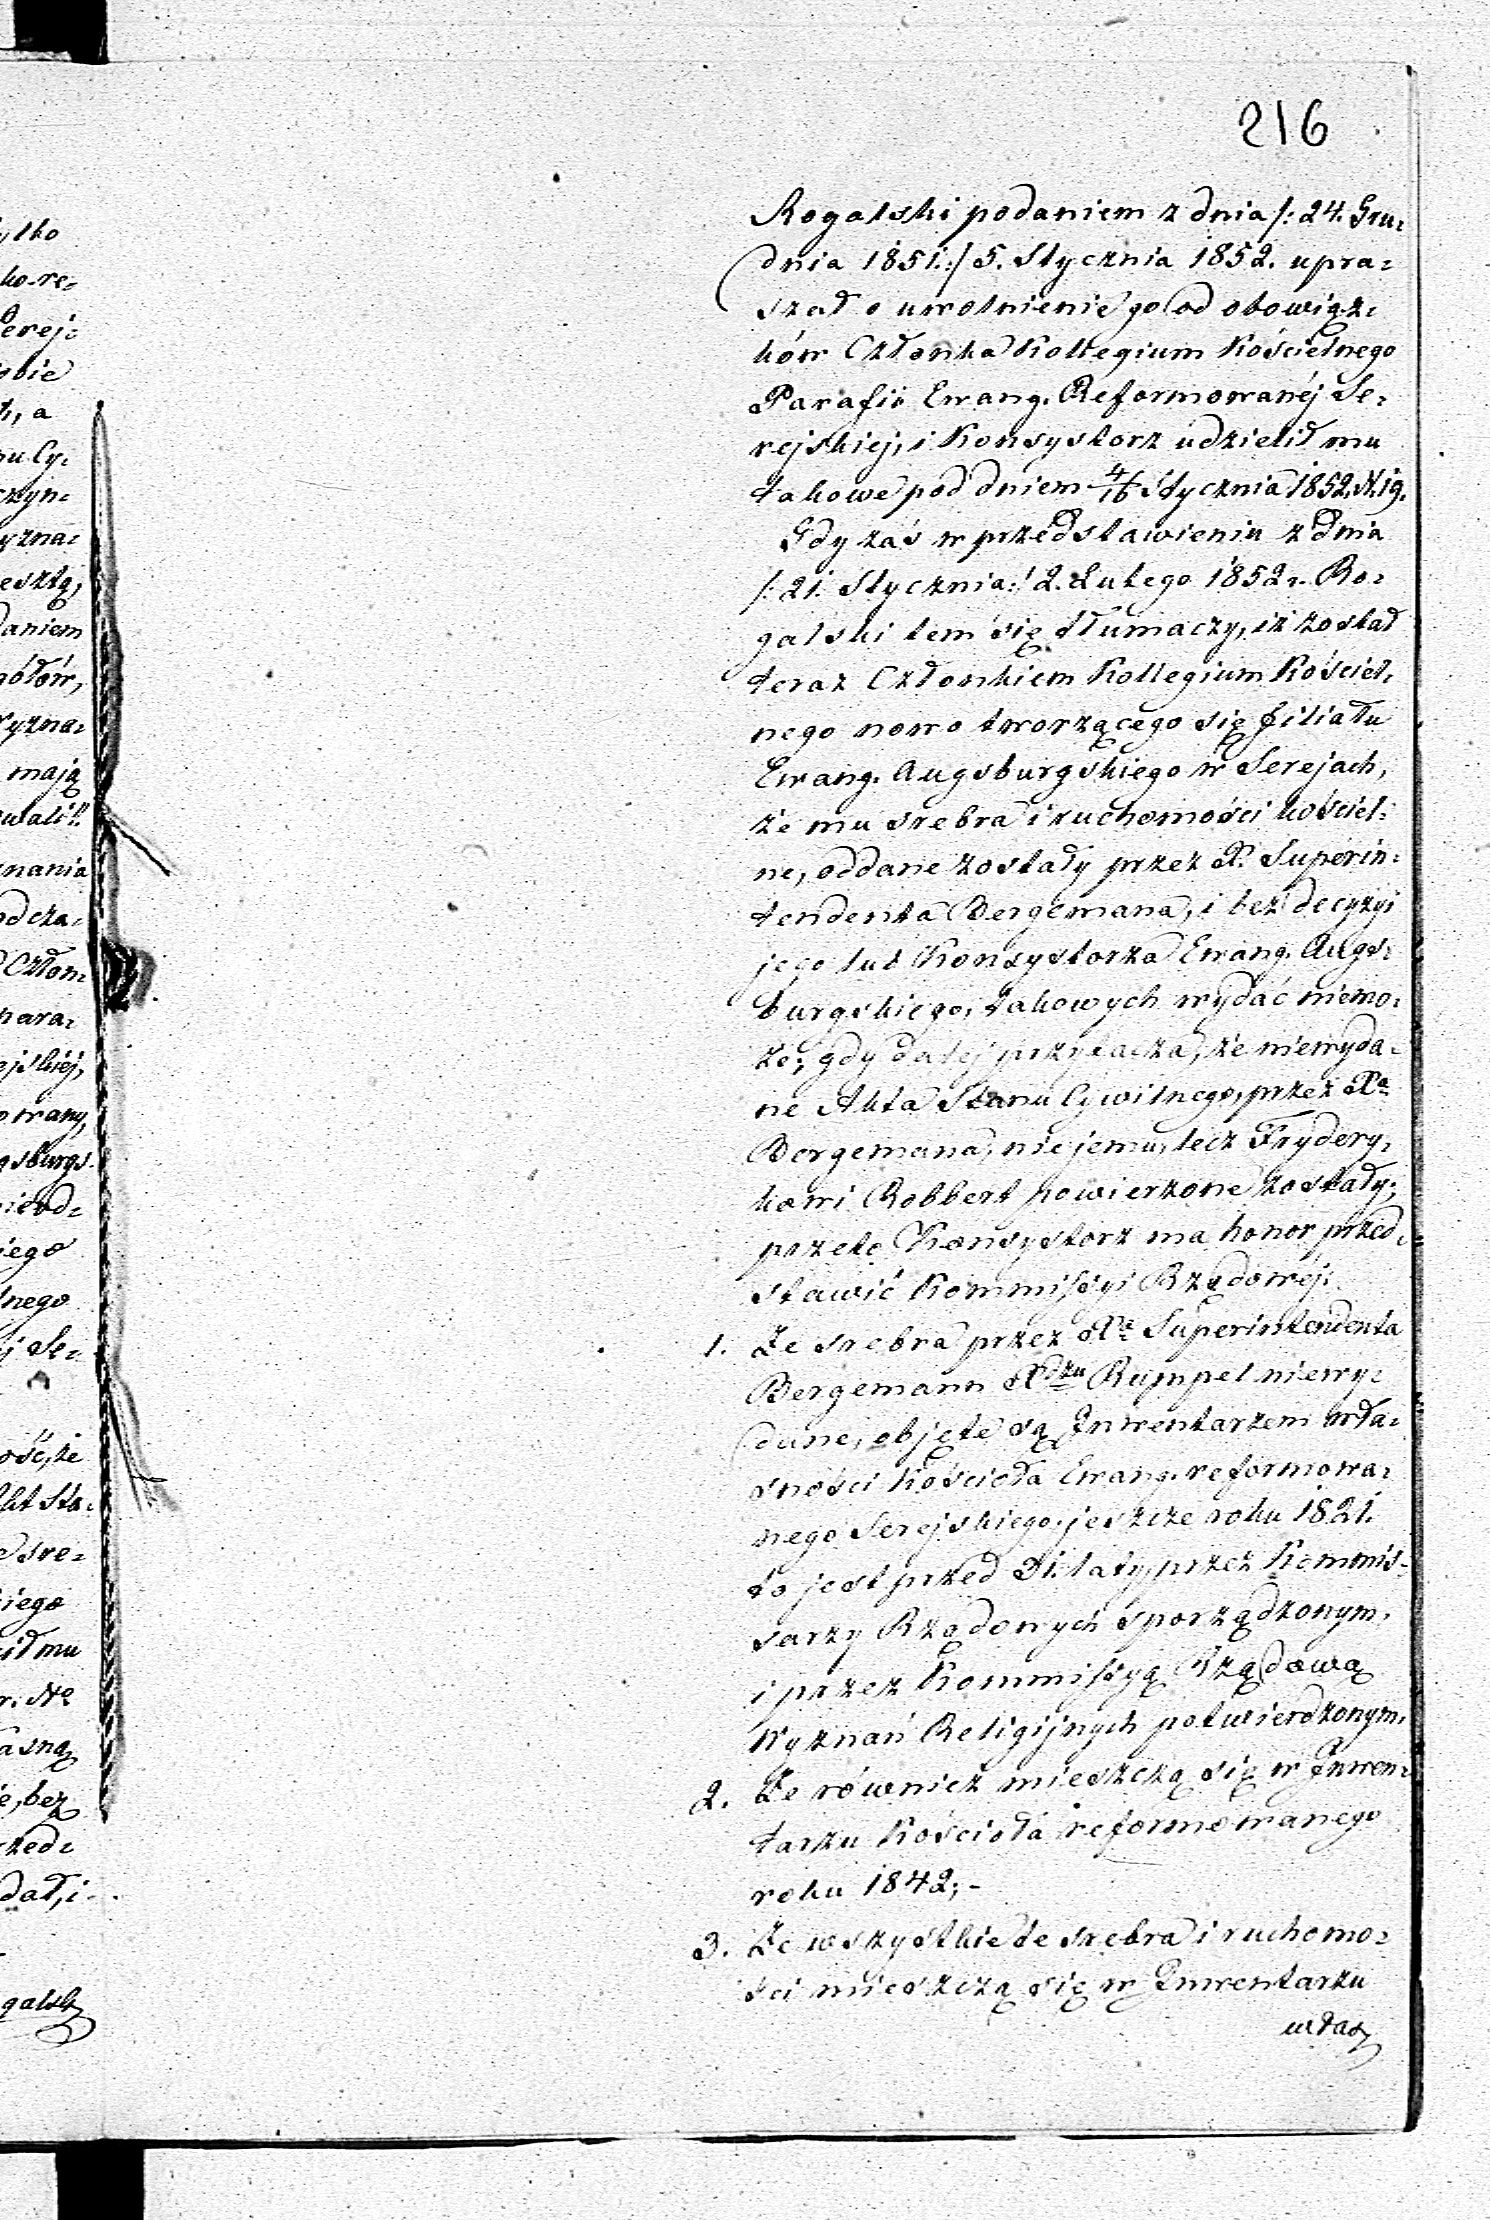 216
Rogalski podaniem z dnia /: 24. Gru=
dnia 1851. :/ 5. Stycznia 1852. upra=
szał o uwolnienie go od obowiąz=
ków Członka Kollegium Kościelnego
Parafii Ewang. Reformowanéj Se=
rejskiej, i Konsystorz udzielił mu
takowe pod dniem 4/16 Stycznia 1852. N. 19.
Gdy zaś w przedstawieniu z dnia
/: 21. Stycznia :/ 2. Lutego 1852 r. Ro=
galski tem się tłumaczy, iż został
teraz Członkiem Kollegium Kościel=
nego nowo tworzącego się filiału
Ewang. Augsburgskiego w Serejach,
że mu srebra i ruchomości kościel=
ne, oddane zostały przez X. Superin=
tendenta Bergemana, i bez decyzyi
jego lub Konsystorza Ewang. Augs=
burgskiego, takowych wydać niemo=
że; gdy dalej przytacza, że niewyda=
ne Akta Stanu Cywilnego, przez Xa
Bergemana, nie jemu, lecz Frydery=
kowi Robbert powierzone zostały;
przeto Konsystorz ma honor przed=
stawić Kommissyi Rządowéj:
1. Że srebra przez Xa Superintendenta
Bergemann Xdzu Rumpel niewy=
dane, objęte są Inwentarzem wła=
sności Kościoła Ewang. reformowa=
nego Serejskiego, jeszcze roku 1821.
to jest przed 31. laty, przez Kommis=
sarzy Rządowych sporządzonym,
i przez Kommissyą Rządową
Wyznań Religijnych potwierdzonym.
2. Że również mieszczą się w Inwen=
tarzu Kościoła reformowanego
roku 1842; -
3. Że wszystkie te srebra i ruchomo=
ści mieszczą się w Inwentarzu
włas